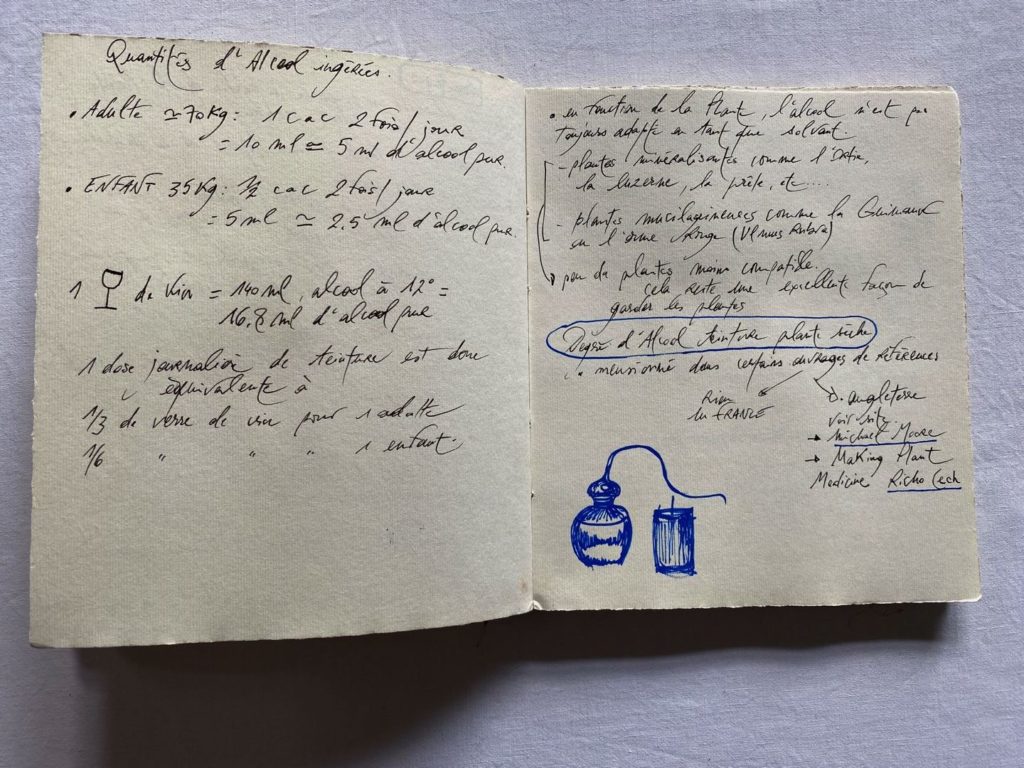 Quantités d'Alcool ingérées.
• ADULTE ≃ 70 Kg : 1 c a c 2 fois / jour
= 10 ml ≃ 5 ml d'alcool pur.
• ENFANT 35 Kg : ½ c a c 2 fois / jour
= 5 ml ≃ 2.5 ml d'alcool pur
1 de Vin = 140 ml, alcool à 12° =
16.8 ml d'alcool pur
1 dose journalière de teinture est donc
équivalente à
1/3 de verre de vin pour 1 adulte
1/6 " " " 1 enfant.
• en fonction de la Plante, l'alcool n'est pas
toujours adapté en tant que solvant.
- plantes minéralisantes comme l'Ortie,
la luzerne, la prêle, etc....
- plantes mucilagineuses comme la Guimauve
ou l'orme Rouge (Ulmus Rubra)
peu de plantes moins compatible.
cela reste une excellente façon de
garder les plantes
Degré d'Alcool teinture plante sèche
mensionné dans certains ouvrages de Références
Rien
en FRANCE
angleterre
voir site
→ Michael Moore
→ Making Plant
Medicine Richo Cech